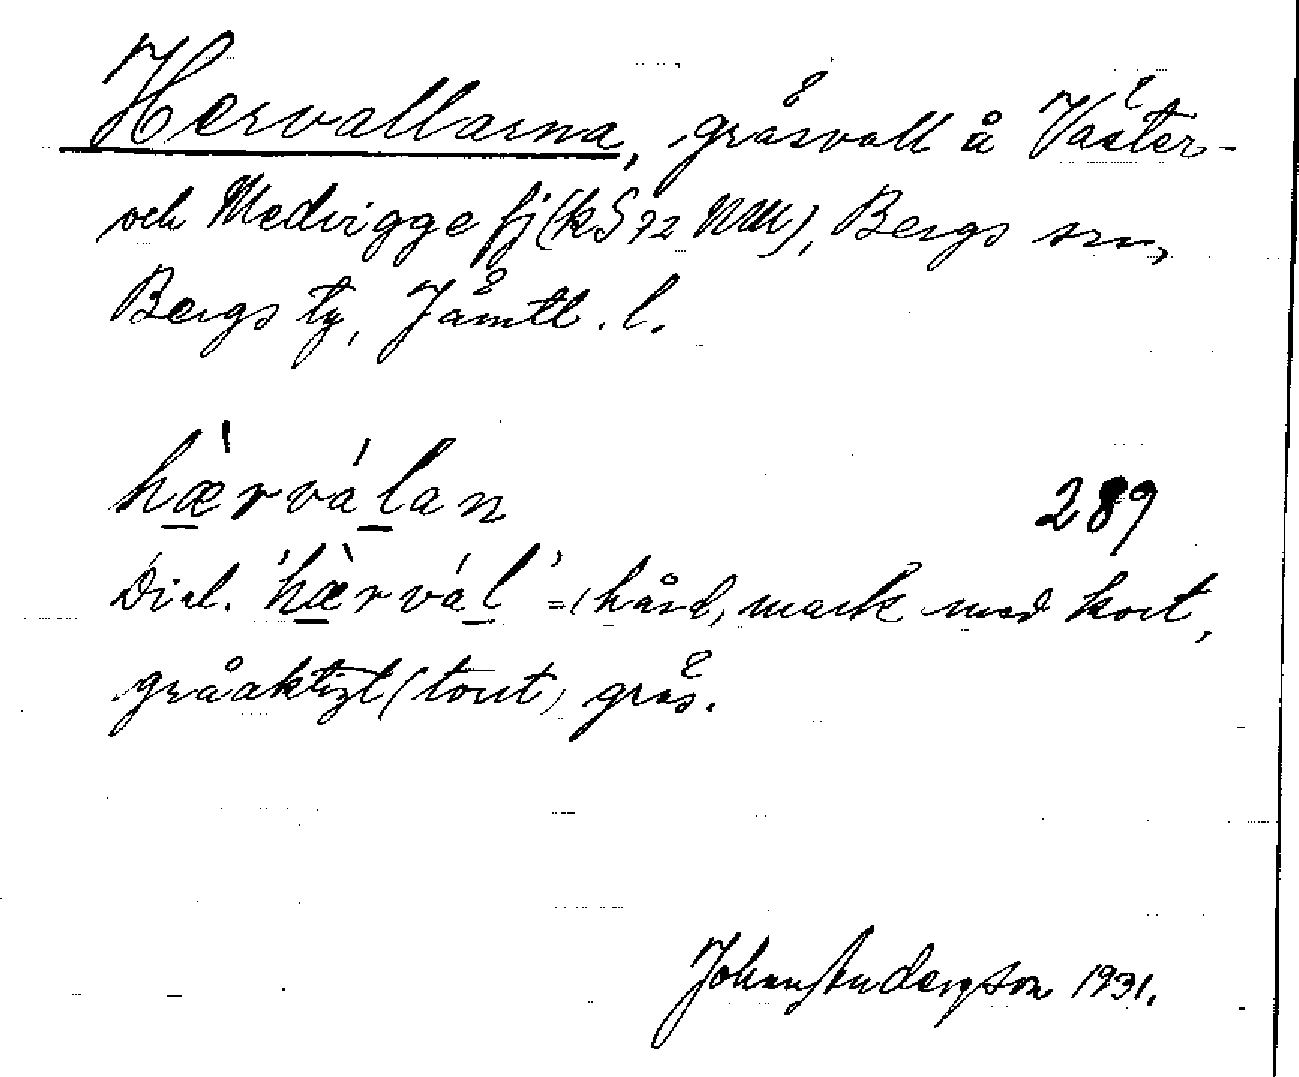 Hervallarna, gräsvall å Väster-
och Medvigge fj (kS 72 NM), Bergs sn,
Bergs tg, Jämtl. l.
hæ̀rválan
289
Dial. 'hæ̀rvál' = (hård) mark med kort,
gråaktigt (torrt) gräs.
Johan Anderzson 1931.